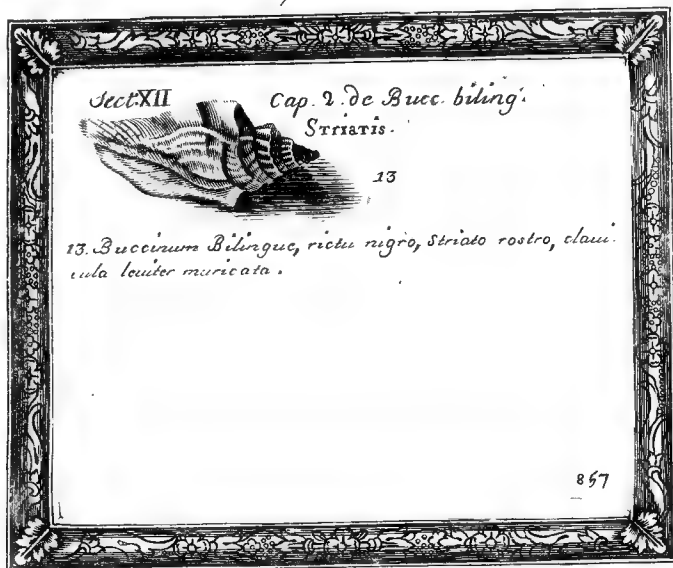 Sect. XII Cap. 2. de Bucc. biling.
STRIATIS.
13
13. Buccinum Bilingue, rictu nigro, Striato rostro, claui-
cula leuiter muricata.
857